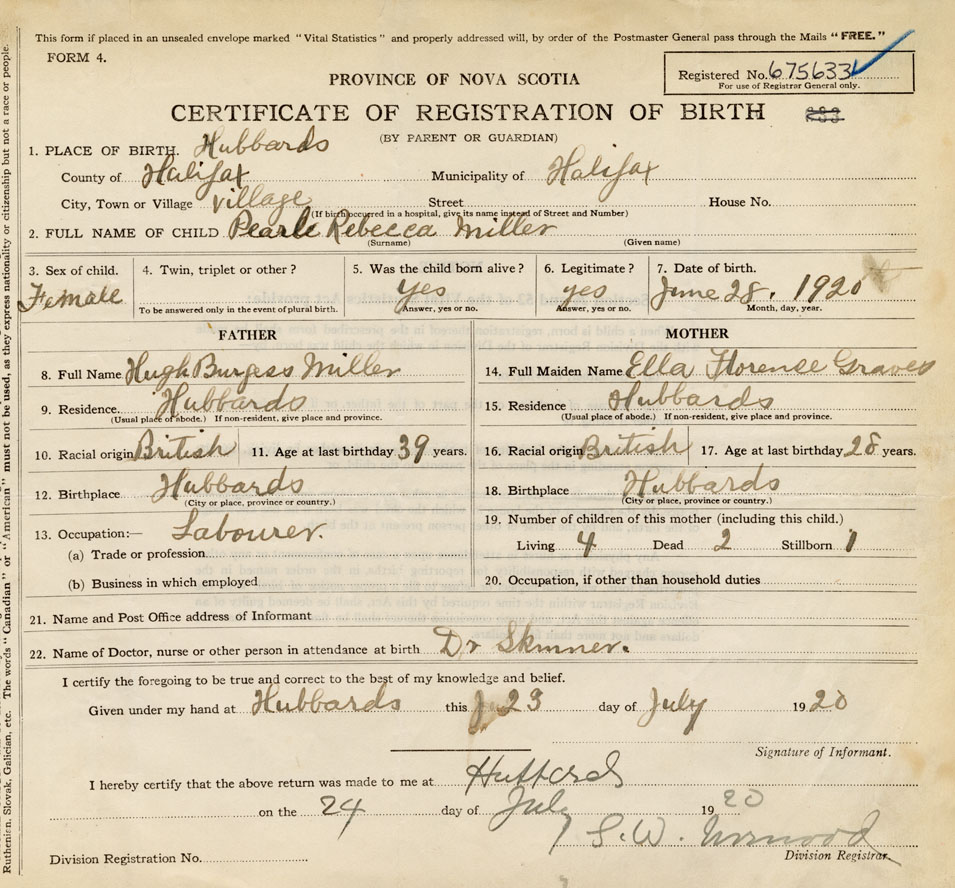 This form if placed in an unsealed envelope marked "Vital Statistics" and properly addressed will, by order of the Postmaster General pass through the Mails "FREE."
FORM 4.
Registered No. 675633
For use of Registrar General only.
PROVINCE OF NOVA SCOTIA
CERTIFICATE OF REGISTRATION OF BIRTH
(BY PARENT OR GUARDIAN)
1. PLACE OF BIRTH. Hubbards
County of Halifax Municipality of Halifax
City, Town or Village village Street House No.
(If birth occurred in a hospital, give its name instead of Street and Number)
2. FULL NAME OF CHILD Pearle Rebecca Miller
(Surname) (Given name)
3. Sex of child. 4. Twin, triplet or other? 5. Was the child born alive? 6. Legitimate? 7. Date of birth.
Female yes yes June 28. 1920
To be answered only in the event of plural birth. Answer, yes or no. Answer, yes or no. Month, day, year.
FATHER MOTHER
8. Full Name Hugh Burgess Miller 14. Full Maiden Name Ella Florense Graves
9. Residence. Hubbards 15. Residence Hubbards
(Usual place of abode.) If non-resident, give place and province. (Usual place of abode.) If non-resident, give place and province.
10. Racial origin British 11. Age at last birthday 39 years. 16. Racial origin British 17. Age at last birthday 28 years.
12. Birthplace Hubbards 18. Birthplace Hubbards
(City or place, province or country.) (City or place, province or country.)
13. Occupation:— Labourer. 19. Number of children of this mother (including this child.)
(a) Trade or profession Living 4 Dead 2 Stillborn 1
(b) Business in which employed 20. Occupation, if other than household duties
21. Name and Post Office address of Informant
22. Name of Doctor, nurse or other person in attendance at birth Dr Skinner.
I certify the foregoing to be true and correct to the best of my knowledge and belief.
Given under my hand at Hubbards this 23 day of July 1920
Signature of Informant.
I hereby certify that the above return was made to me at
on the 24 day of July 1920
S. W.
Division Registration No. Division Registrar.
Ruthenien, Slovak, Galician, etc. The words "Canadian" or "American" must not be used, as they express nationality or citizenship but not a race or people.